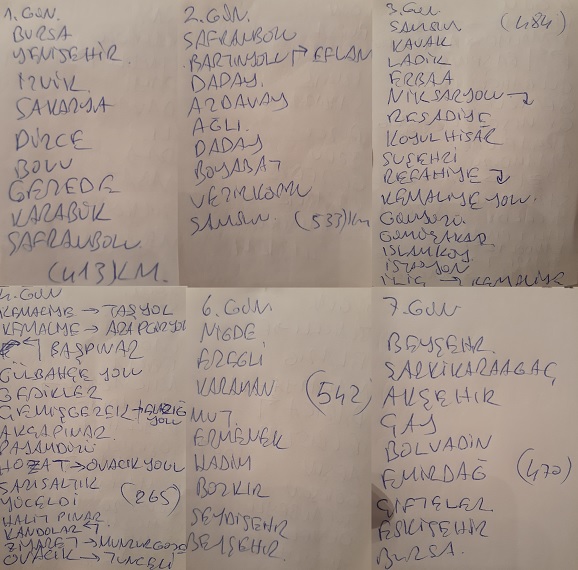 1. GÜN.
BURSA
YENİŞEHİR.
İZNİK.
SAKARYA
DÜZCE
BOLU
GEREDE
KARABÜK
SAFRANBOLU
(413) KM.
2. GÜN.
SAFRANBOLU
BARTINYOLU → EFLANİ
DADAY.
AZDAVAY
AĞLI.
DADAY
BOYABAT
VEZİRKÖPRÜ
SAMSUN. (533) Km
3. GÜN
SAMSUN (484)
KAVAK
LADİK
ERBAA
NİKSARYOLU
REŞADİYE
KOYULHİSAR
SUŞEHRİ
REFAHİYE
KEMALİYE YOLU.
GÜMÜŞAKAR
İSTASYON
İLİÇ → KEMALİYE
4. GÜN
KEMALİYE → TAŞYOL
KEMALİYE → ARAPGİRYOLU
BAŞPINAR
GÜLBAHÇE YOLU
GEDİKLER
GEMİSGEREK → YOLU
AKÇAPINAR.
HOZAT → OVACIK YOLU
SARISALTIK
YÜCELDİ (265)
HALİT PINAR.
KANDOLAR
ZİYARET → MUNZURGÖZE
OVACIK → TUNCELİ
6. GÜN
NİĞDE
EREĞLİ
KARAMAN (542)
MUT.
ERMENEK
HADİM
BOZKIR
SEYDİŞEHİR
BEYŞEHİR.
7. GÜN
BEYŞEHR.
ŞARKİKARAAGAÇ
AKŞEHİR
ÇAY
BOLVADİN
EMİRDAĞ (470)
ÇİFTELER
ESKİŞEHİR
BURSA.